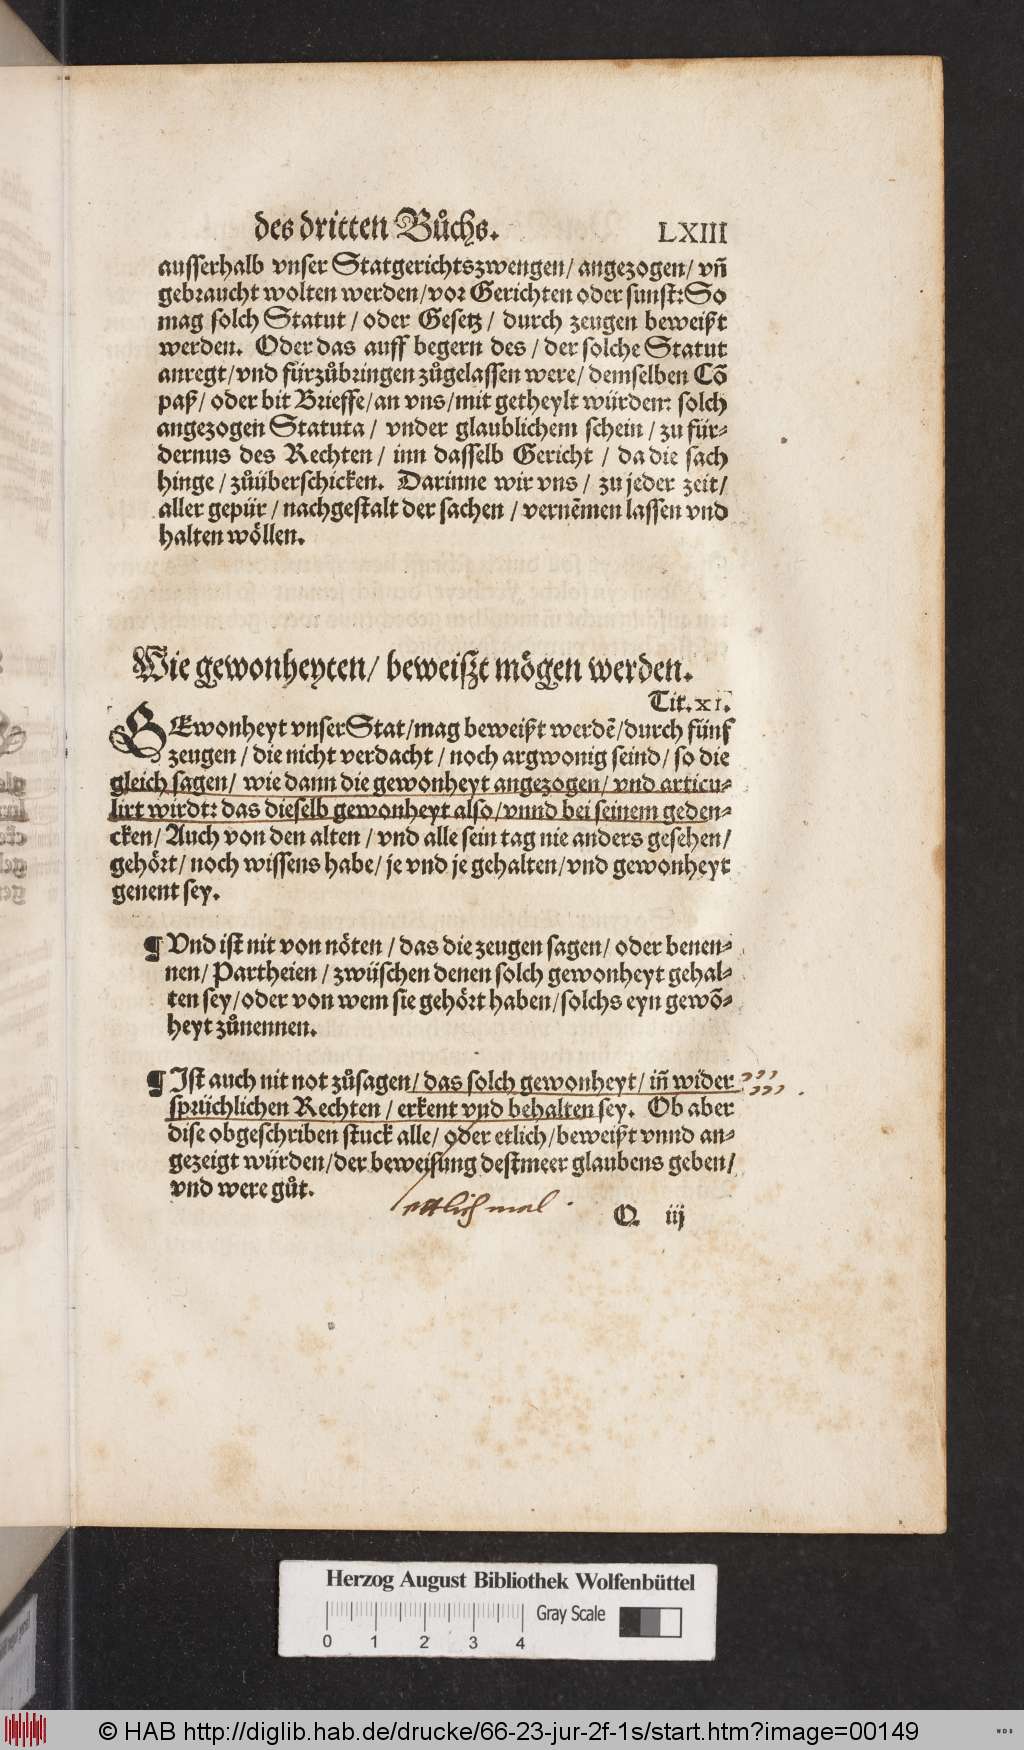 des dritten Bůchs. LXIII
ausserhalb vnser Statgerichtszwengen/ angezogen/ vñ
gebraucht wolten werden/vor Gerichten oder sunst: So
mag solch Statut / oder Gesetz / durch zeugen beweißt
werden. Oder das auff begern des / der solche Statut
anregt/vnd fürzůbringen zůgelassen were/ demselben Cõ
paß/ oder bit Brieffe/an vns/mit getheylt würden: solch
angezogen Statuta / vnder glaublichem schein / zu für-
dernus des Rechten / inn dasselb Gericht / da die sach
hinge / zůüberschicken. Darinne wir vns / zu jeder zeit/
aller gepür / nachgestalt der sachen / vernẽmen lassen vnd
halten wöllen.
Wie gewonheyten/ beweißt mögen werden.
Tit. xi.
GEwonheyt vnser Stat/mag beweißt werdẽ/durch fünf
zeugen / die nicht verdacht / noch argwonig seind/ so die
gleich sagen/ wie dann die gewonheyt angezogen/ vnd articu-
lirt wirdt: das dieselb gewonheyt also/vnnd bei seinem geden-
cken/ Auch von den alten / vnd alle sein tag nie anders gesehen/
gehört/ noch wissens habe/ je vnd je gehalten/vnd gewonheyt
genent sey.
¶ Vnd ist nit von nöten / das die zeugen sagen/ oder benen-
nen/ Partheien / zwüschen denen solch gewonheyt gehal-
ten sey/oder von wem sie gehört haben/solchs eyn gewõ-
heyt zůnennen.
¶ Ist auch nit not zůsagen/ das solch gewonheyt/ iñ wider
sprüchlichen Rechten / erkent vnd behalten sey. Ob aber
dise obgeschriben stuck alle/ oder etlich/beweißt vnnd an-
gezeigt würden/der beweisung destmeer glaubens geben/
vnd were gůt.
ettlich mal.
O. iij
Herzog August Bibliothek Wolfenbüttel
0 1 2 3 4 Gray Scale
© HAB http://diglib.hab.de/drucke/66-23-jur-2f-1s/start.htm?image=00149